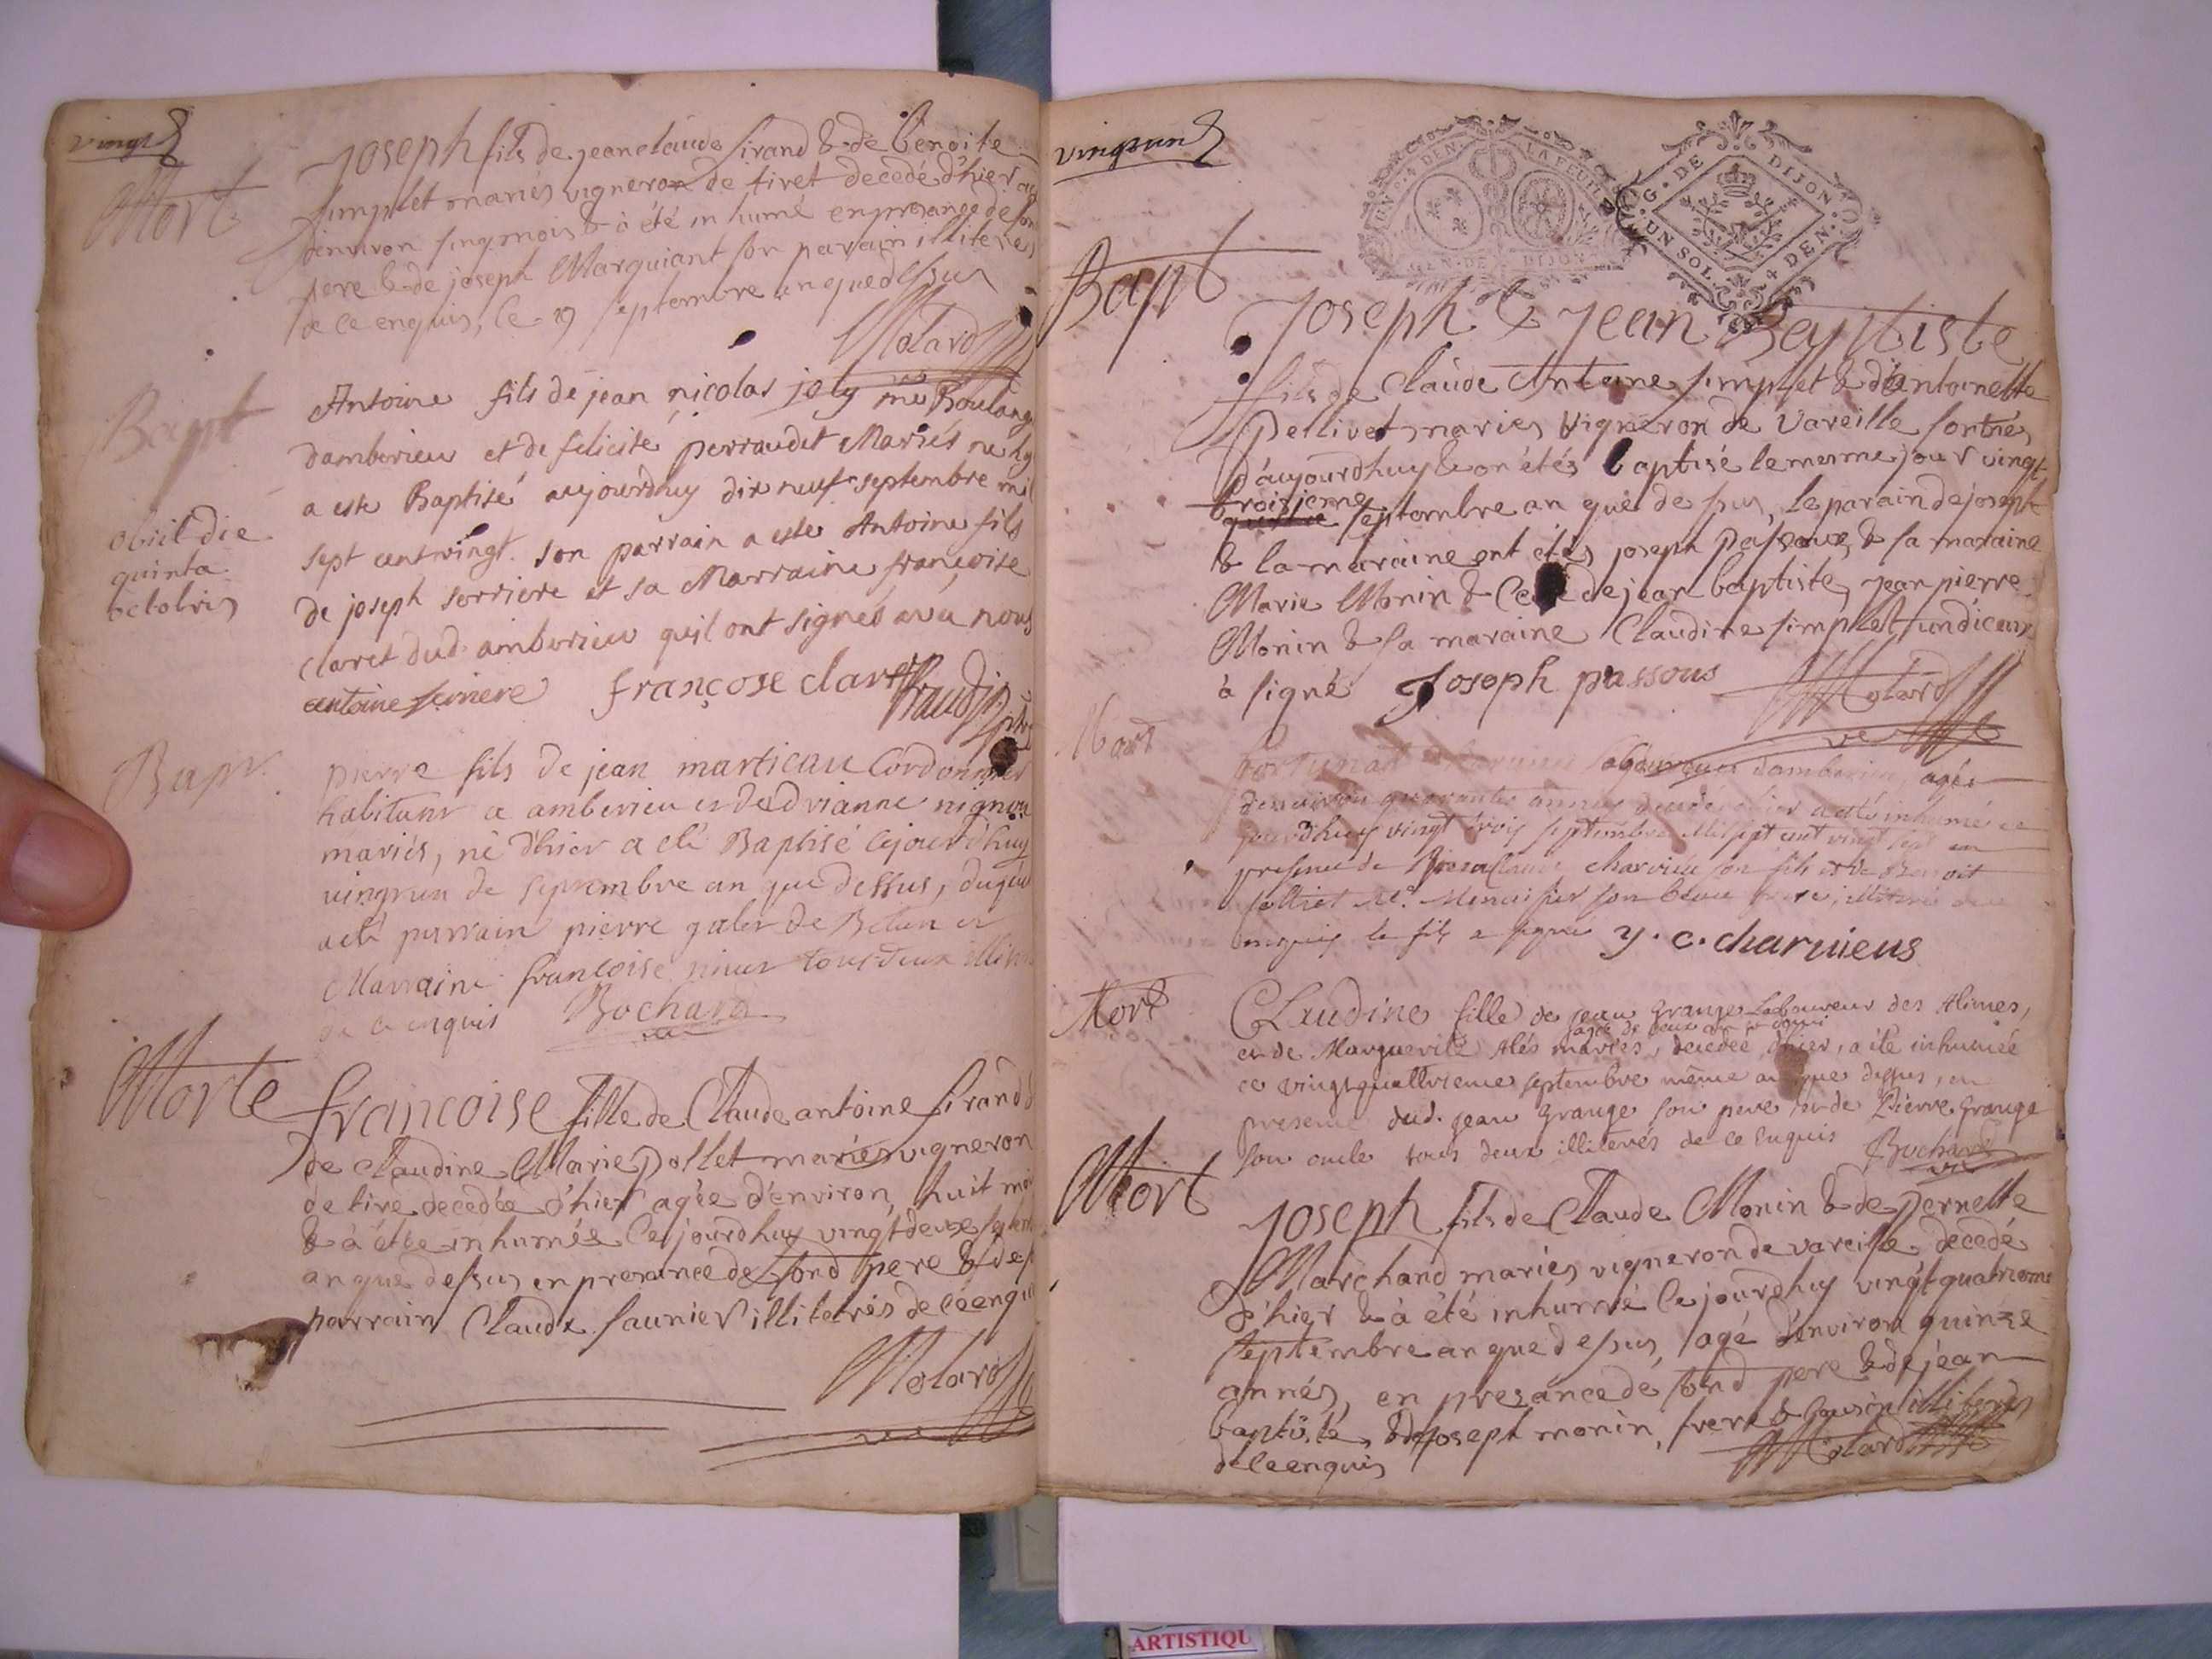 vingt
Mort
Joseph fils de jean claude sirand & de benoite
simplet mariés vigneron de tiret decedé d'hier agé
d'environ sinq mois & à été inhumé en presance de son
pere & de joseph Marguiant son parain illiterés
de ce enquis, le 19 septembre an que dessus
Molard
Bapt
Antoine fils de jean nicolas joly me Boulang
damberieu et de felicité perraudet Mariés né hy
a este Baptisé aujourdhuy dix neuf septembre mil
sept cent vingt son parrain a esté Antoine fils
de joseph serriere et sa Marraine françoise
claret dud amberieu qu'il ont signés avec nous
antoine seriere françoise claret
obiit die
quinta
octobris
Bapt.
pierre fils de jean marticau Cordonnier
habitant a amberieu et dedrianne
mariés, né d'hier a eté Baptisé cejourdhuy
vingtun de septembre an que dessus, duquel
a eté parrain pierre galer de Betan et
Marraine françoise tous deux
de ce enquis Bochard
Morte
françoise fille de Claude antoine sirand &
de claudine Marie pollet mariés vigneron
de tire decedée d'hier agée d'environ huit moi
& à étée inhumée Ce jourdhuy vingt deuxe septem
an que dessus en presance de sond pere & de
parrain Claude saunier illiterés de ce enquis
Molard
vingtun
GEN. DE DIJON
G. DE DIJON
UN SOL. 4 DEN.
Bapt
Joseph & Jean Baptiste
fils de Claude Antoine simplet & d'Antoinette
perlivet mariés vigneron de Vareille sortnés
d'aujourdhuy & on étés baptisé le mesme jour vingt
troisieme
septembre an que dessus, le parain de joseph
& la maraine ont étés joseph passoux & sa maraine
Marie Monin & Celle de jean baptiste, jean pierre
Monin & sa maraine Claudine simplet, un diceux
à signé Joseph passous Molard
Mort
laboureur damberieu, agée
denviron quarante années decedé hier a été inhumé ce
jourdhuy vingt trois septembre Mil sept cent vingt sept en
presence de charvieu son fils et de Benoit
Me. Menuisier son beau frere, illiteré de ce
enquis le fils a signé y. c. charuieus
Mort
CLaudine fille de jean Grange Laboureur des Alimes,
agée de deux ans et demi
et de Marguerite Alés mariés, decedée d'hier, a ité inhumée
ce vingtquattrieme septembre même an que dessus, en
presence dud. jean Grange son pere et de Pierre Grange
son oncle tous deux illiterés de ce enquis Bochard
Mort
Joseph fils de Claude Monin & de pernette
Marchand mariés vigneron de vareille, decedé
d'hier & à été inhumé Ce jourdhuy vingt quatrieme
septembre an que dessus, agé d'environ quinze
annés, en presance de sond pere & de jean
baptiste, & de joseph monin, frere & cousin illiterés
de ce enquis Molard
ARTISTIQU